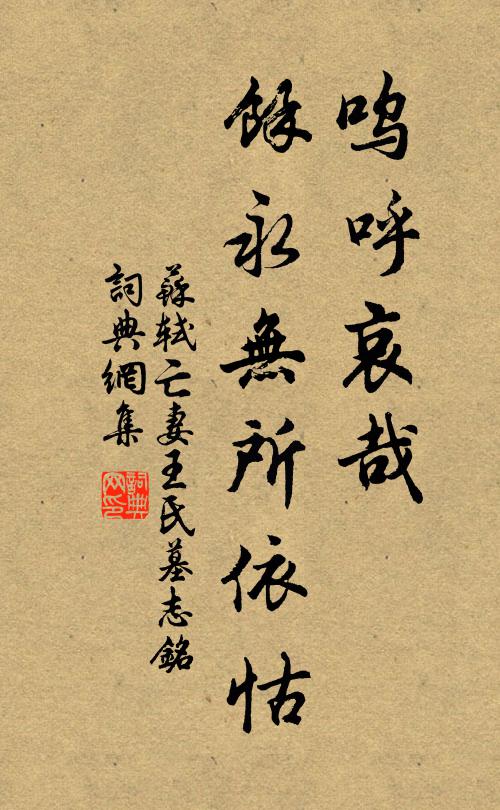 嗚呼哀哉
餘永無所依怙
蘇軾亡妻王氏墓志銘
詞典網集
詞典网印